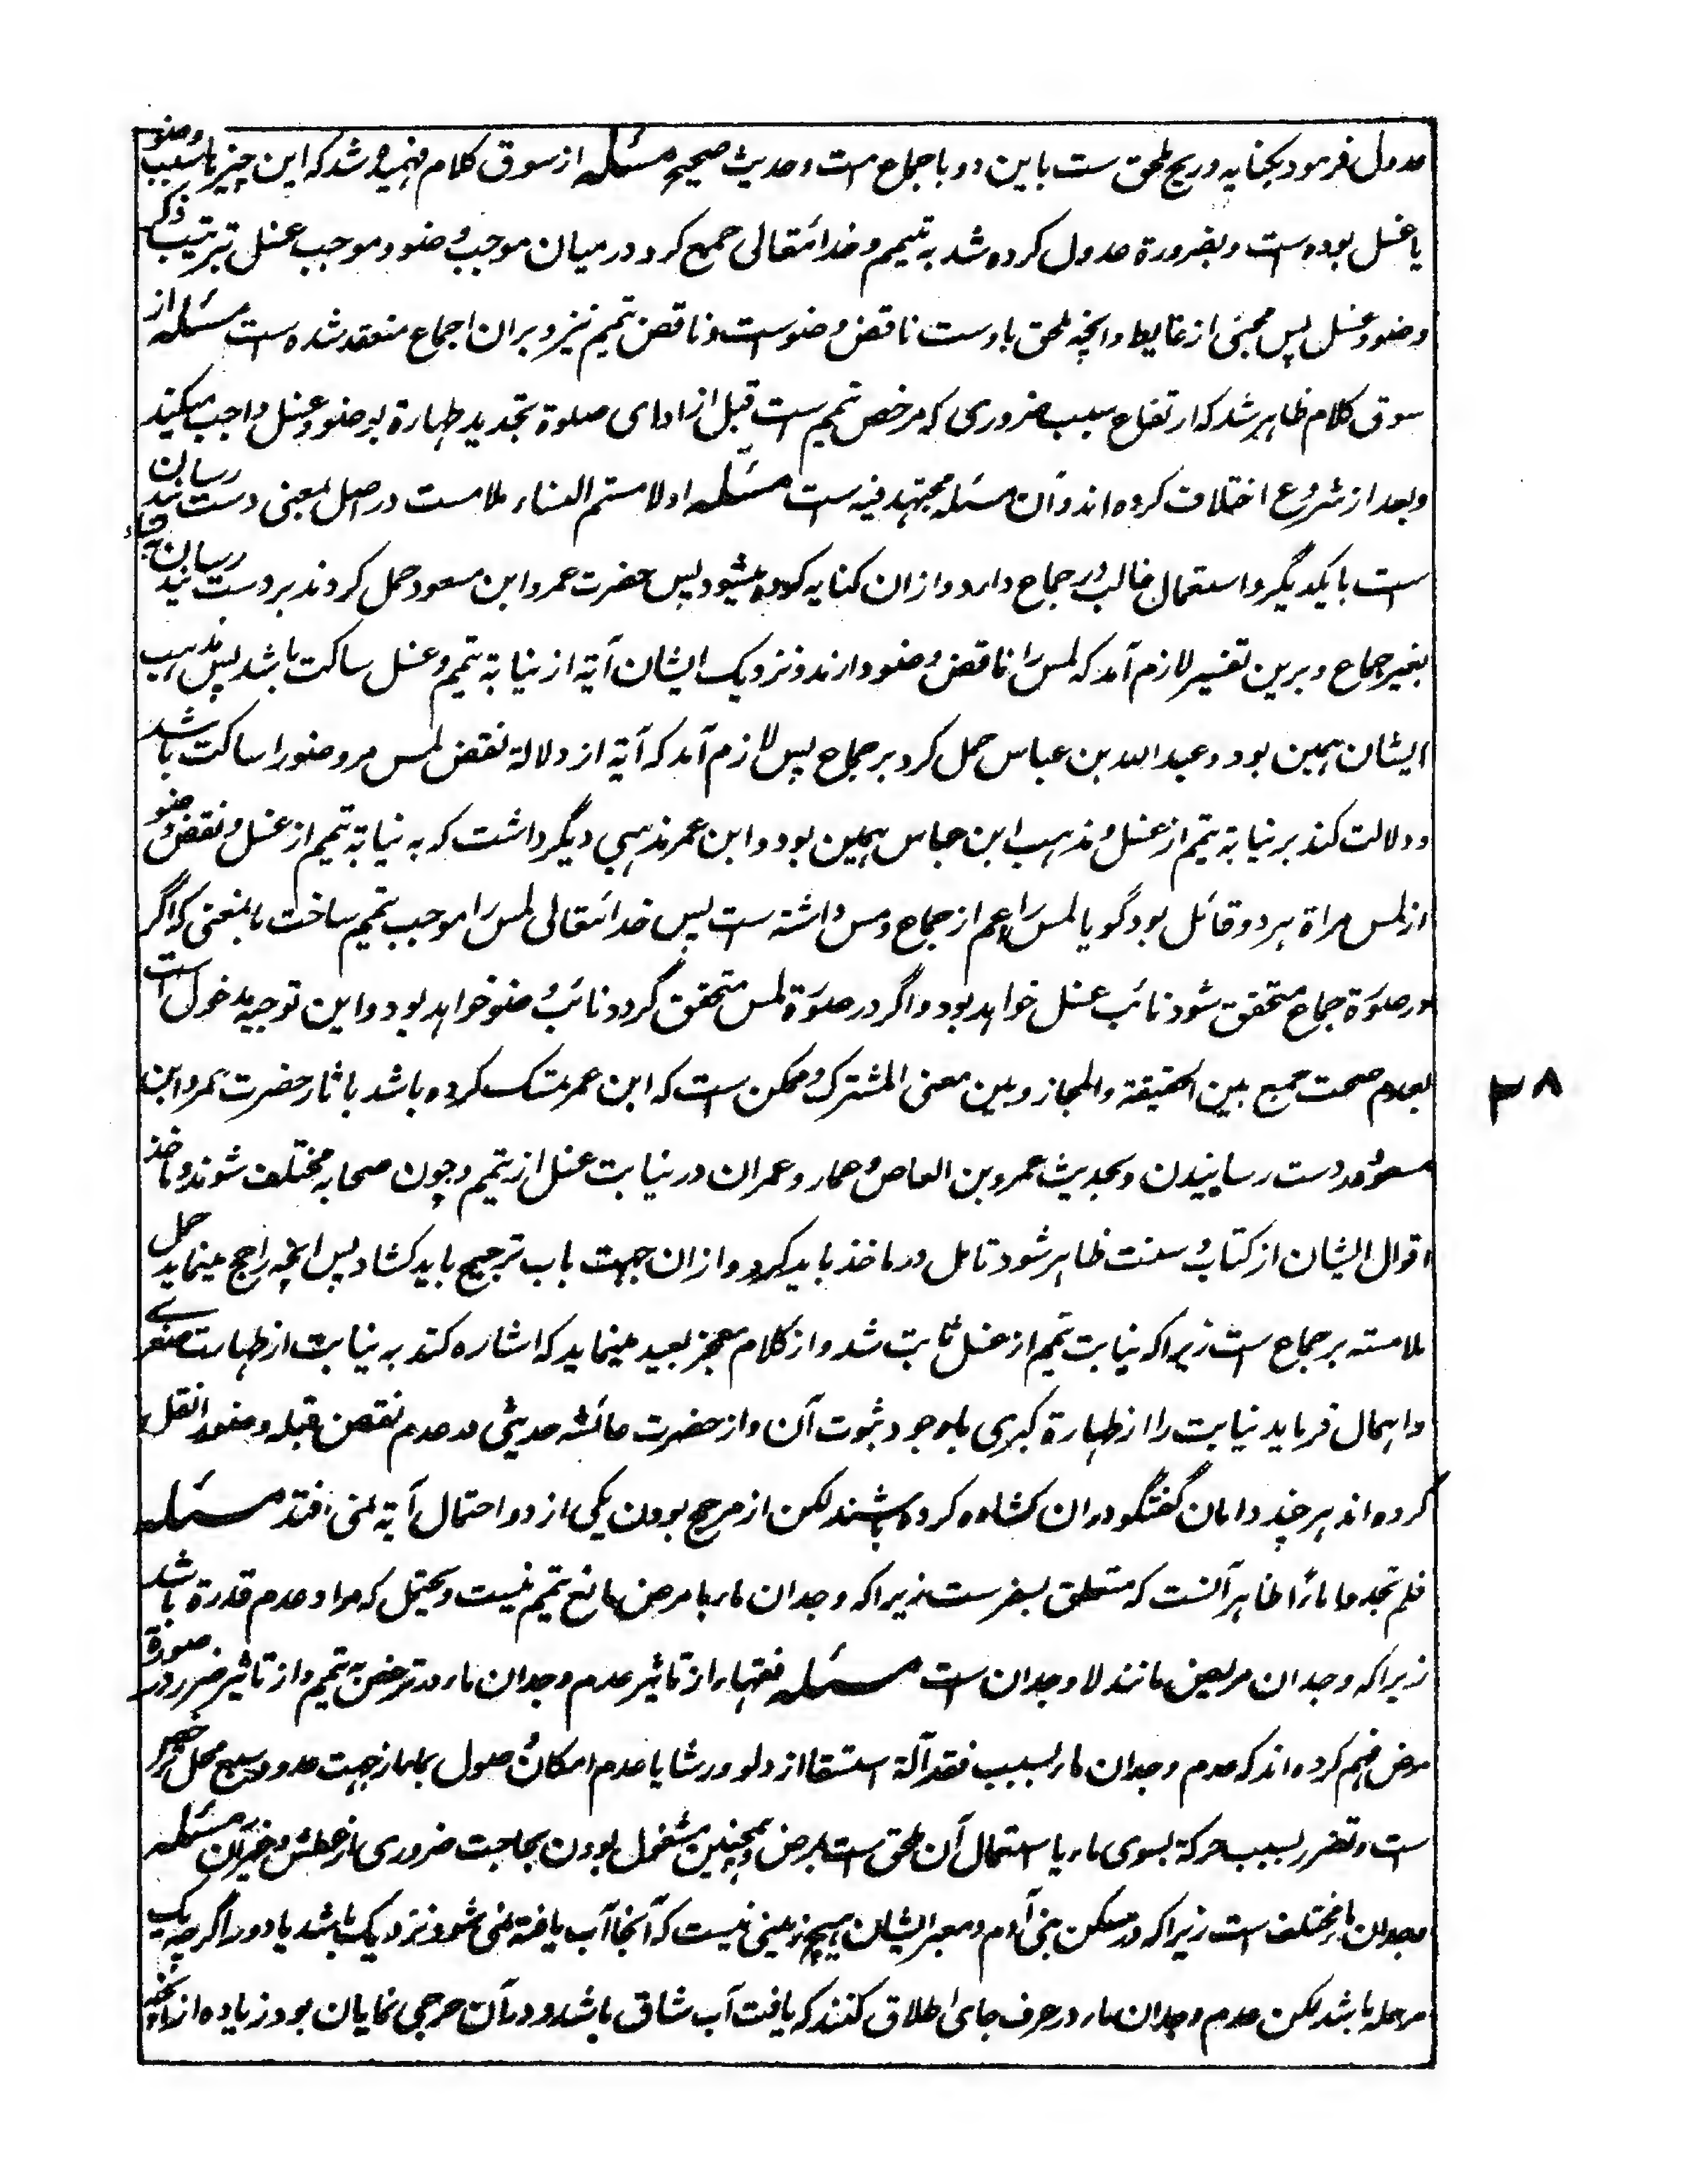 عدول فرمود بکنایه و ریح ملحق ست باین دو باجماع ست و حدیث صحیح مسئله از سوق کلام فهمیده شد که این چیزها سبب وضو
یا غسل بوده ست و بضرورة عدول کرده شد به تیمم و خدا تعالی جمع کرد در میان موجب وضو و موجب غسل بترتیب ذکر
وضو و غسل پس مجئی از غایط و انچه ملحق باوست ناقض وضوست و ناقض تیمم نیز و بران اجماع منعقد شده ست مسئله از
سوق کلام ظاهر شد که ارتفاع سبب ضروری که مرخص تیمم ست قبل از ادای صلوة تجدید طهارة بوضو و غسل واجب میکند
و بعد از شروع اختلاف کرده اند و آن مسئله مجتهد فیه ست مسئله اولامستم النساء ملامست در اصل بمعنی دست رسانیدن
ست با یکدیگر و استعمال غالب در جماع دارد و ازان کنایه کرده میشود پس حضرت عمر و ابن مسعود حمل کردند بر دست رسانیدن
بغیر جماع و برین تفسیر لازم آمد که لمس را ناقض وضو دارند و نزدیک ایشان آیة از نیابة تیمم و غسل ساکت باشد پس مذهب
ایشان همین بود و عبدالله بن عباس حمل کرد بر جماع پس لازم آمد که آیة از دلالة نقض لمس مر وضو را ساکت باشد
و دلالت کند بر نیابة تیمم از غسل و مذهب ابن عباس همین بود و ابن عمر مذهبی دیگر داشت که به نیابة تیمم از غسل و نقض وضو
از لمس مراة هردو قائل بود گویا لمس را اعم از جماع و مس داشته ست پس خدا تعالی لمس را موجب تیمم ساخت باینمعنی که اگر
در صورة جماع متحقق شود نائب غسل خواهد بود و اگر در صورة لمس متحقق گردد نائب وضو خواهد بود و این توجیه مدخول ست
بعدم صحت جمع بین الحقیقة والمجاز و بین معنی المشترک و ممکن ست که ابن عمر متمسک کرده باشد بآثار حضرت عمر و ابن
۳۸
مسعود در دست رسانیدن و بحدیث عمرو بن العاص و عمار و عمران در نیابت غسل از تیمم و چون صحابه مختلف شوند و ماخذ
اقوال ایشان از کتاب و سنت ظاهر شود تامل در ماخذ باید کرد و ازان جهت باب ترجیح باید کشاد پس انچه راجح مینماید حمل
ملامسته بر جماع ست زیراکه نیابت تیمم از غسل ثابت شد و از کلام معجز بعید مینماید که اشاره کند به نیابت از طهارت صغری
و اهمال فرماید نیابت را از طهارة کبری باوجود ثبوت آن و از حضرت عائشه حدیثی در عدم نقض قبله وضو را نقل
کرده اند هر چند دامان گفتگو دران کشاده کرده باشند لکن از مرجح بودن یکی از دو احتمال آیة نمی افتد مسئله
فلم تجدوا ماءً ظاهر آنست که متعلق بسفرست زیراکه وجدان ماء با مرض مانع تیمم نیست و یحتمل که مراد عدم قدرة باشد
زیراکه وجدان مریض مانند لاوجدان ست مسئله فقهاء از تاثیر عدم وجدان ماء در ترخص به تیمم و از تاثیر ضرر در صورة
مرض فهم کرده اند که عدم وجدان ماء بسبب فقد آلة استسقا از دلو و رشا یا عدم امکان وصول بماء از جهت عدو و سبع محل ترخص
ست و تضرر بسبب حرکة بسوی ماء یا استعمال آن ملحق ست بمرض و همچنین مشغول بودن بحاجت ضروری از عطش و غیر آن مسئله
وجدان ماء مختلف ست زیراکه در مسکن بنی آدم و معبر ایشان هیچ زمینی نیست که آنجا آب یافته نمی شود نزدیک باشد یا دور اگرچه یک
مرحله باشد لکن عدم وجدان ماء در عرف جای اطلاق کنند که یافت آب شاق باشد و در آن حرجی نمایان بود زیاده از انچه